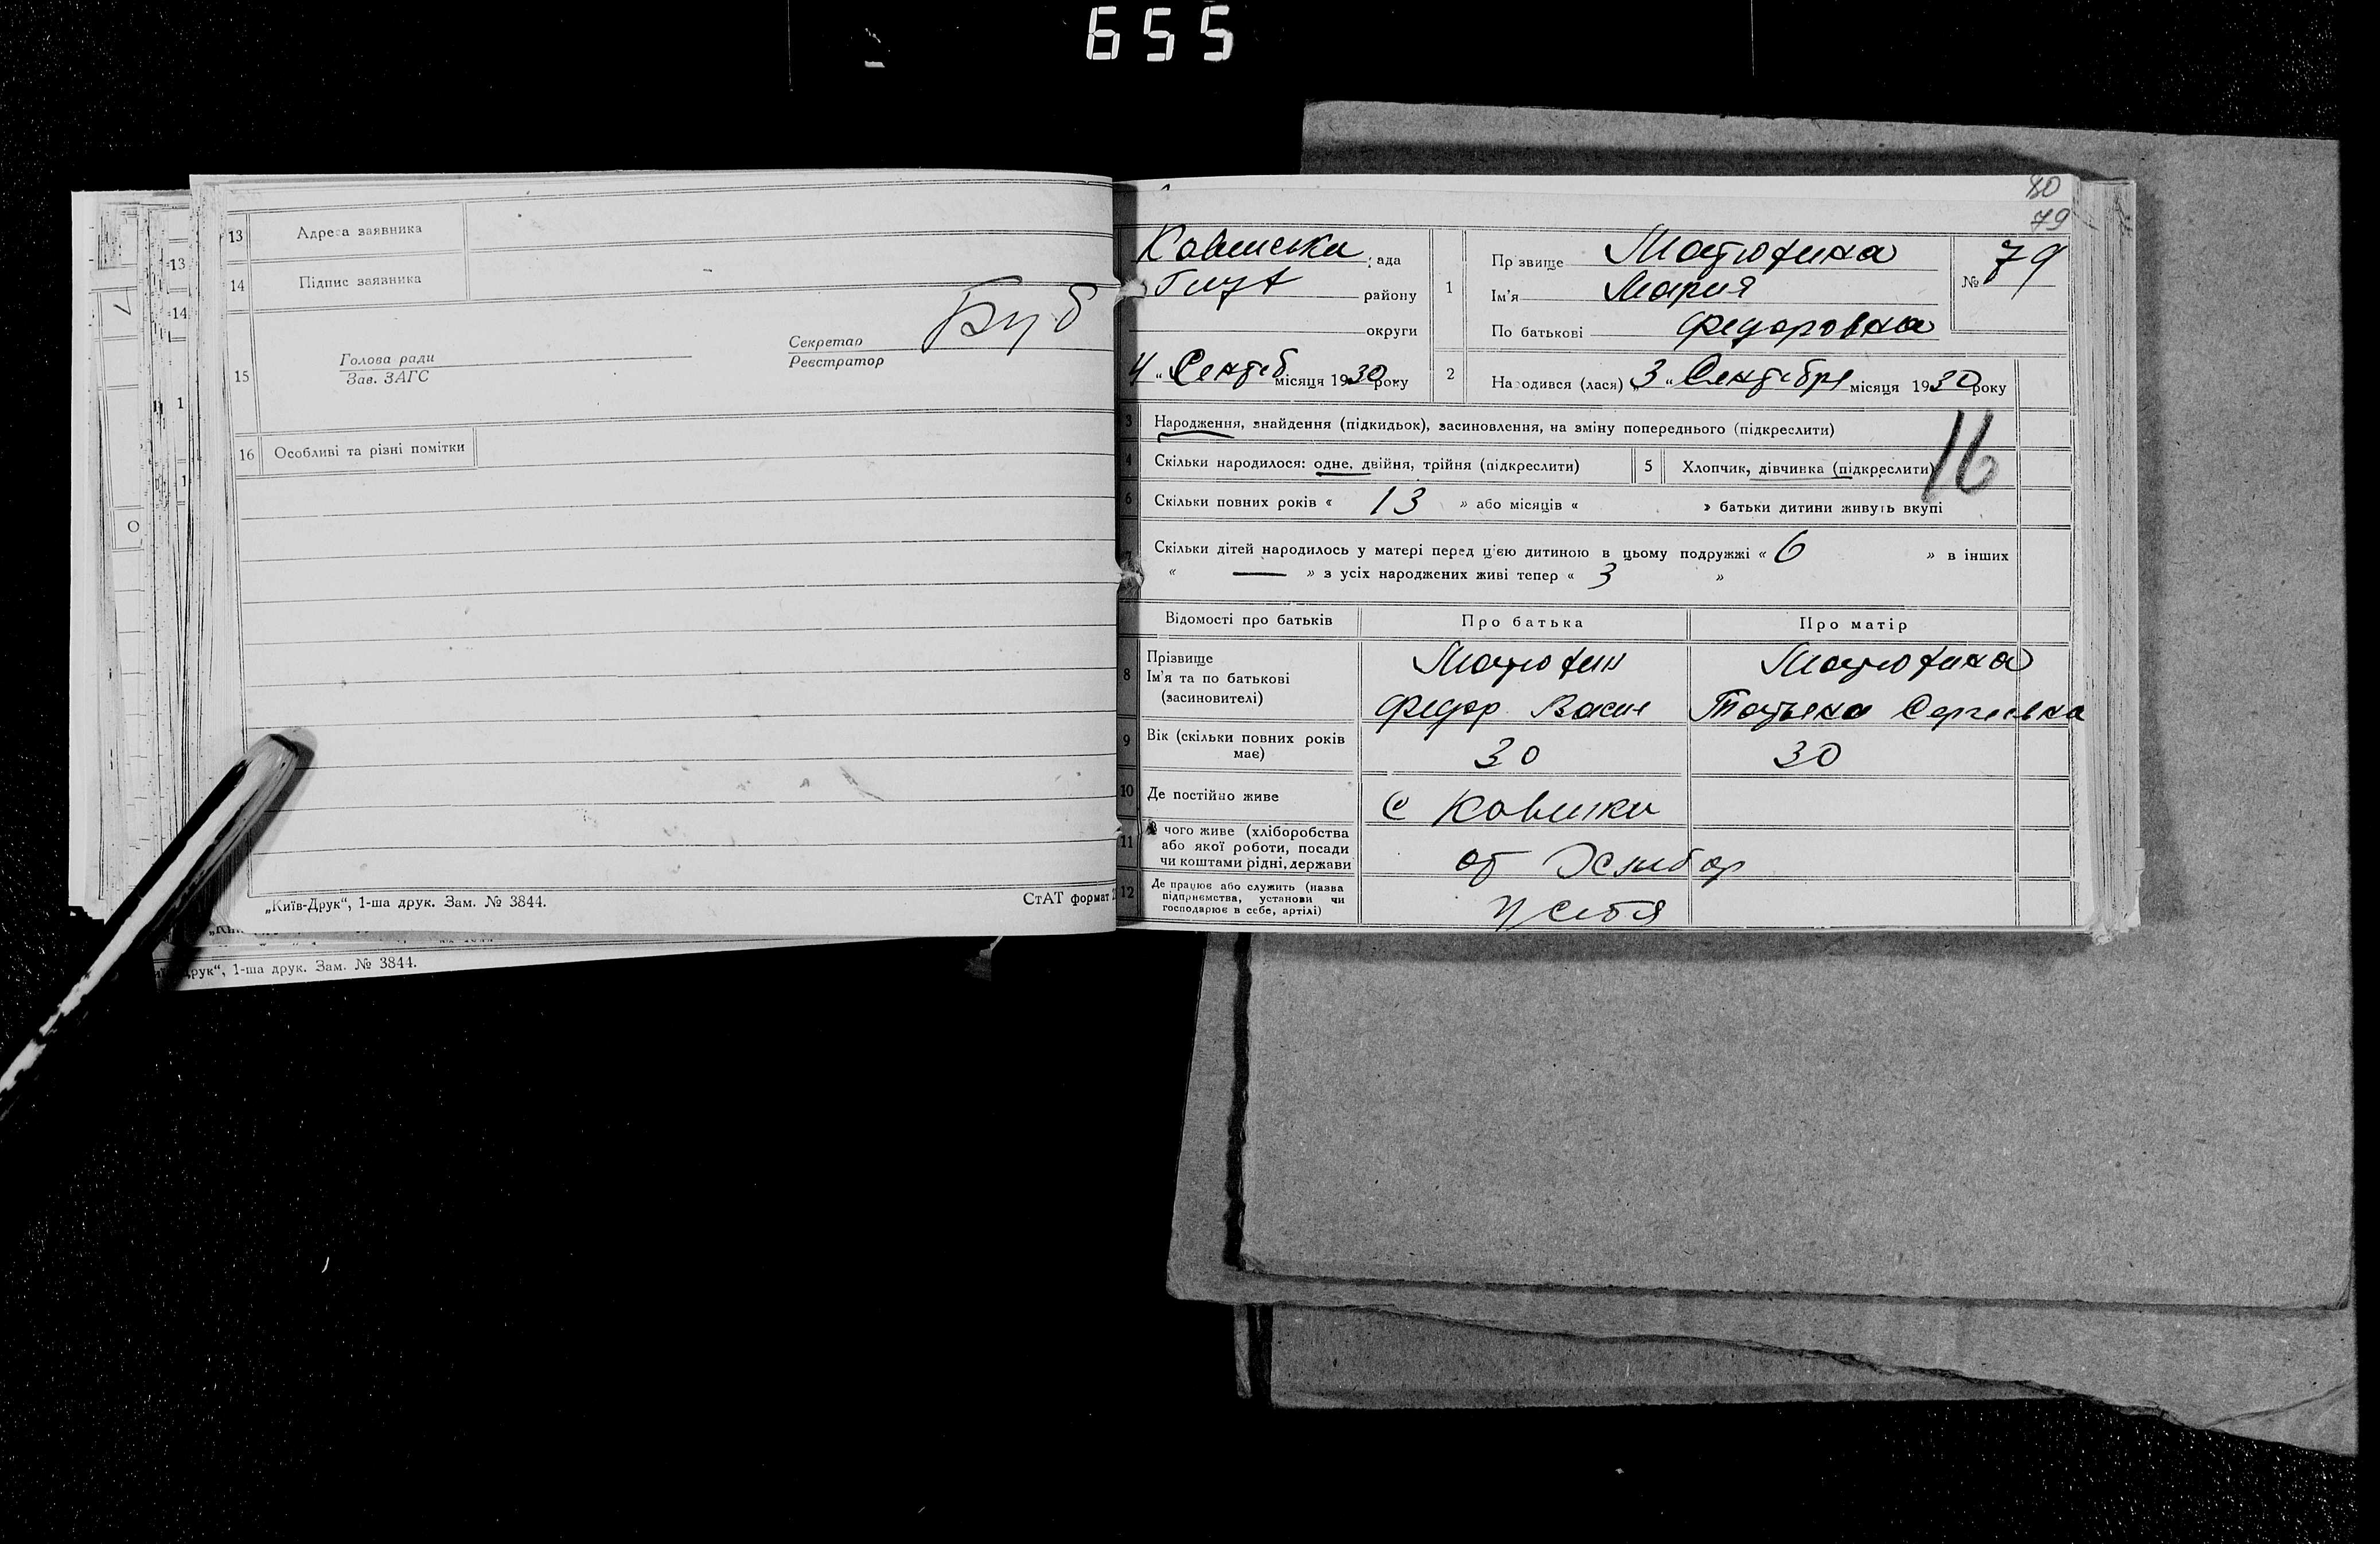 655
13 Адреса заявника
14 Підпис заявника
15 Голова ради
Зав. ЗАГС
Секретар
Реєстратор
Буб
16 Особливі та різні помітки
„Київ-Друк“, 1-ша друк. Зам. № 3844.
СтАТ формат
друк“, 1-ша друк. Зам. № 3844.
80
79
рада
району
округи
4 „ Сентеб місяця 1930 року
1 Прізвище Матюхина
Ім'я Мария
По батькові Федоровна
№ 79
2 Народився (лася) „3 “ Сентебря місяця 1930 року
3 Народження, знайдення (підкидьок), засиновлення, на зміну попереднього (підкреслити)
16
4 Скільки народилося: одне, двійня, трійня (підкреслити)
5 Хлопчик, дівчинка (підкреслити)
6 Скільки повних років « 13 » або місяців « » батьки дитини живуть вкупі
7 Скільки дітей народилось у матері перед цією дитиною в цьому подружжі « 6 » в інших
« — » з усіх народжених живі тепер « 3 »
Відомості про батьків
Про батька
Про матір
8 Прізвище
Ім'я та по батькові
(засновителі)
Матюхин
Федор Васил
Матюхина
Татьяна Сергеевна
9 Вік (скільки повних років має)
30
30
10 Де постійно живе
с Ковшики
11 З чого живе (хліборобства
або якої роботи, посади
чи коштами рідні, держави
от Хлибор
12 Де працює або служить (назва
підприємства, установи чи
господарює в себе, артілі)
У себя